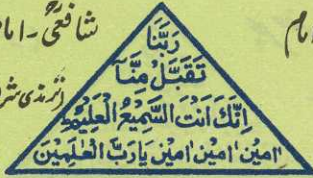 شافعیؒ - امام
امام
ترمذی شر
رَبَّنَا
تَقَبَّلْ مِنَّا
اِنَّكَ اَنْتَ السَّمِيْعُ الْعَلِيْمُ
اٰمين اٰمين اٰمين يَارَبَّ الْعٰلَمِيْنَ